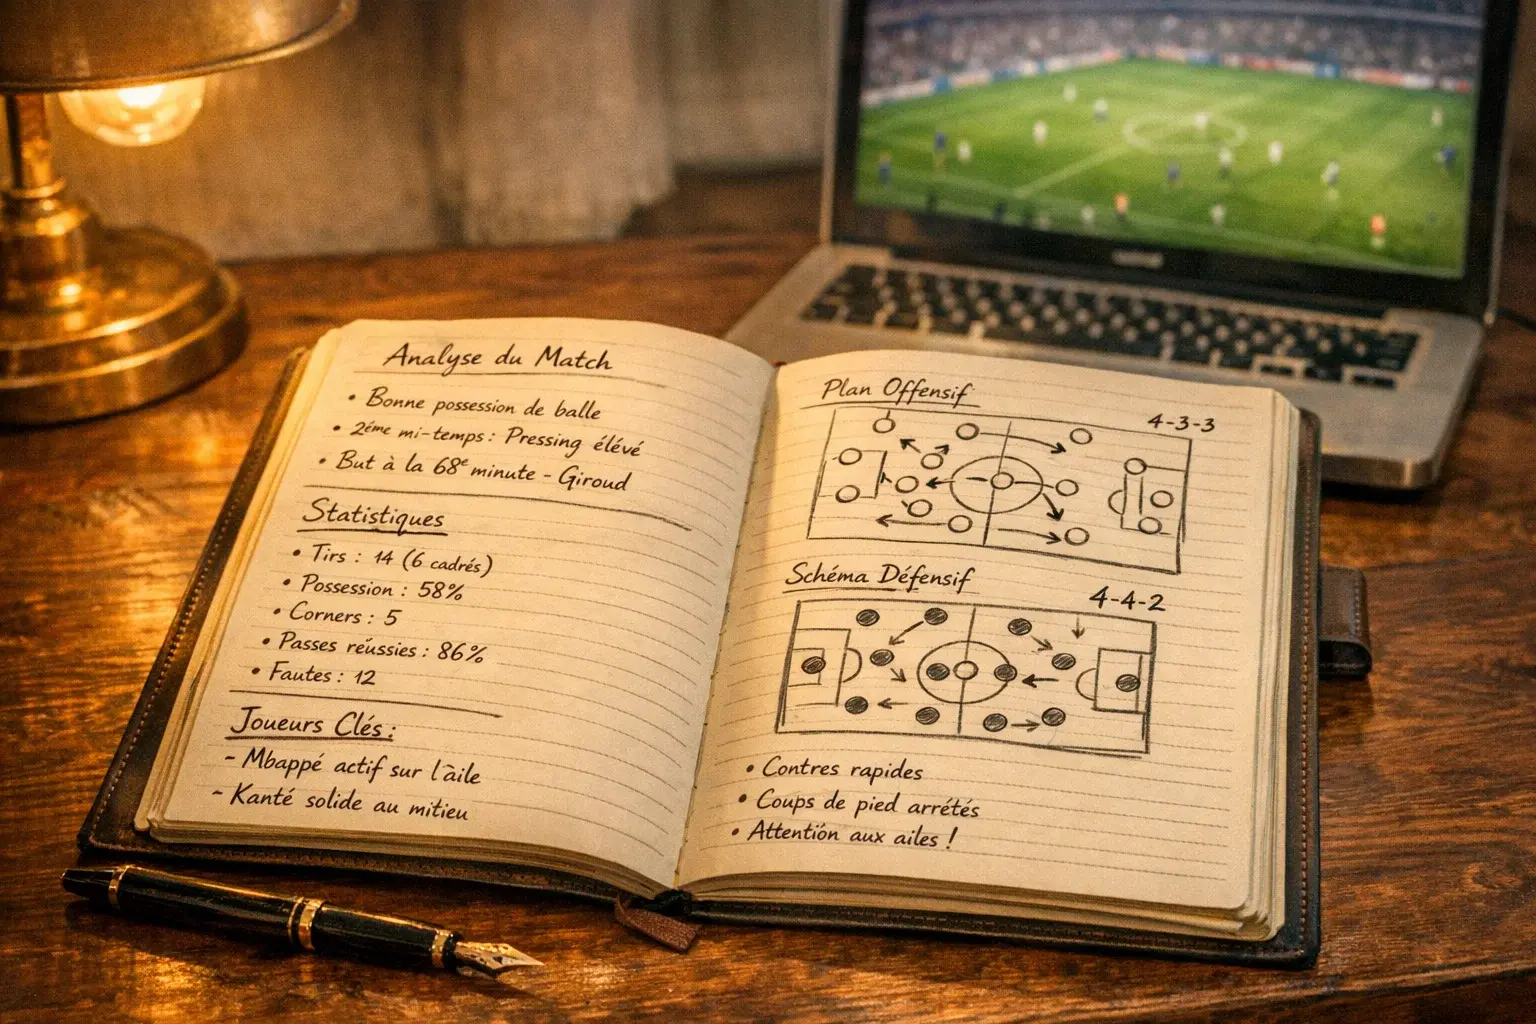 Analyse du Match
• Bonne possession de balle
• 2ème mi-temps : Pressing élévé
• But à la 68e minute - Giroud
Statistiques
• Tirs : 14 (6 cadrés)
• Possession : 58%
• Corners : 5
• Passes réussies : 86%
• Fautes : 12
Joueurs Clés :
- Mbappé actif sur l'àile
- Kanté solide au mitieu
Plan Offensif
4-3-3
Schéma Défensif
4-4-2
• Contres rapides
• Coups de pied arrétés
• Attentión aux ailes !